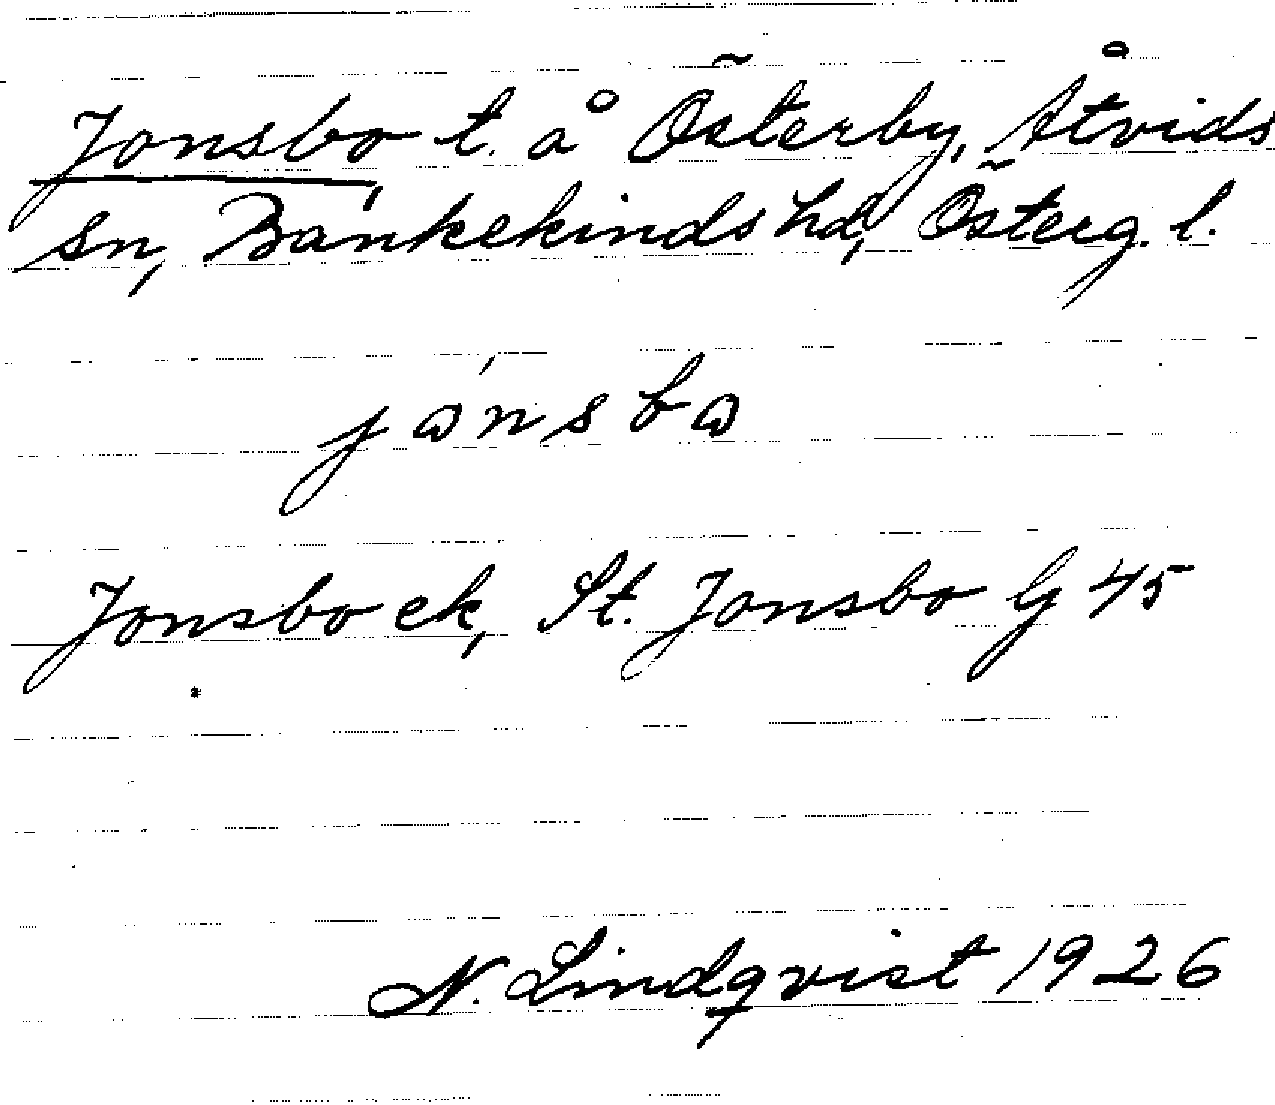 Jonsbo t. å Österby, Åtvids
sn, Bankekinds hd, Österg. l.
jɷ́nsbɷ
Jonsbo ek, St. Jonsbo G 45
N. Lindqvist 1926